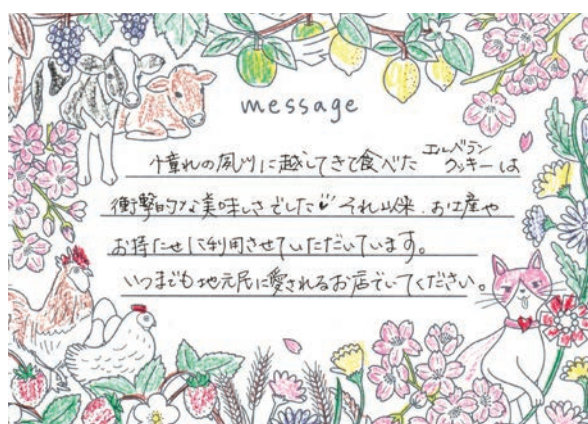 message
憧れの夙川に越してきて食べたエルベランクッキーは
衝撃的な美味しさでした。それ以来、お土産や
お持たせに利用させていただいています。
いつまでも地元民に愛されるお店でいてください。